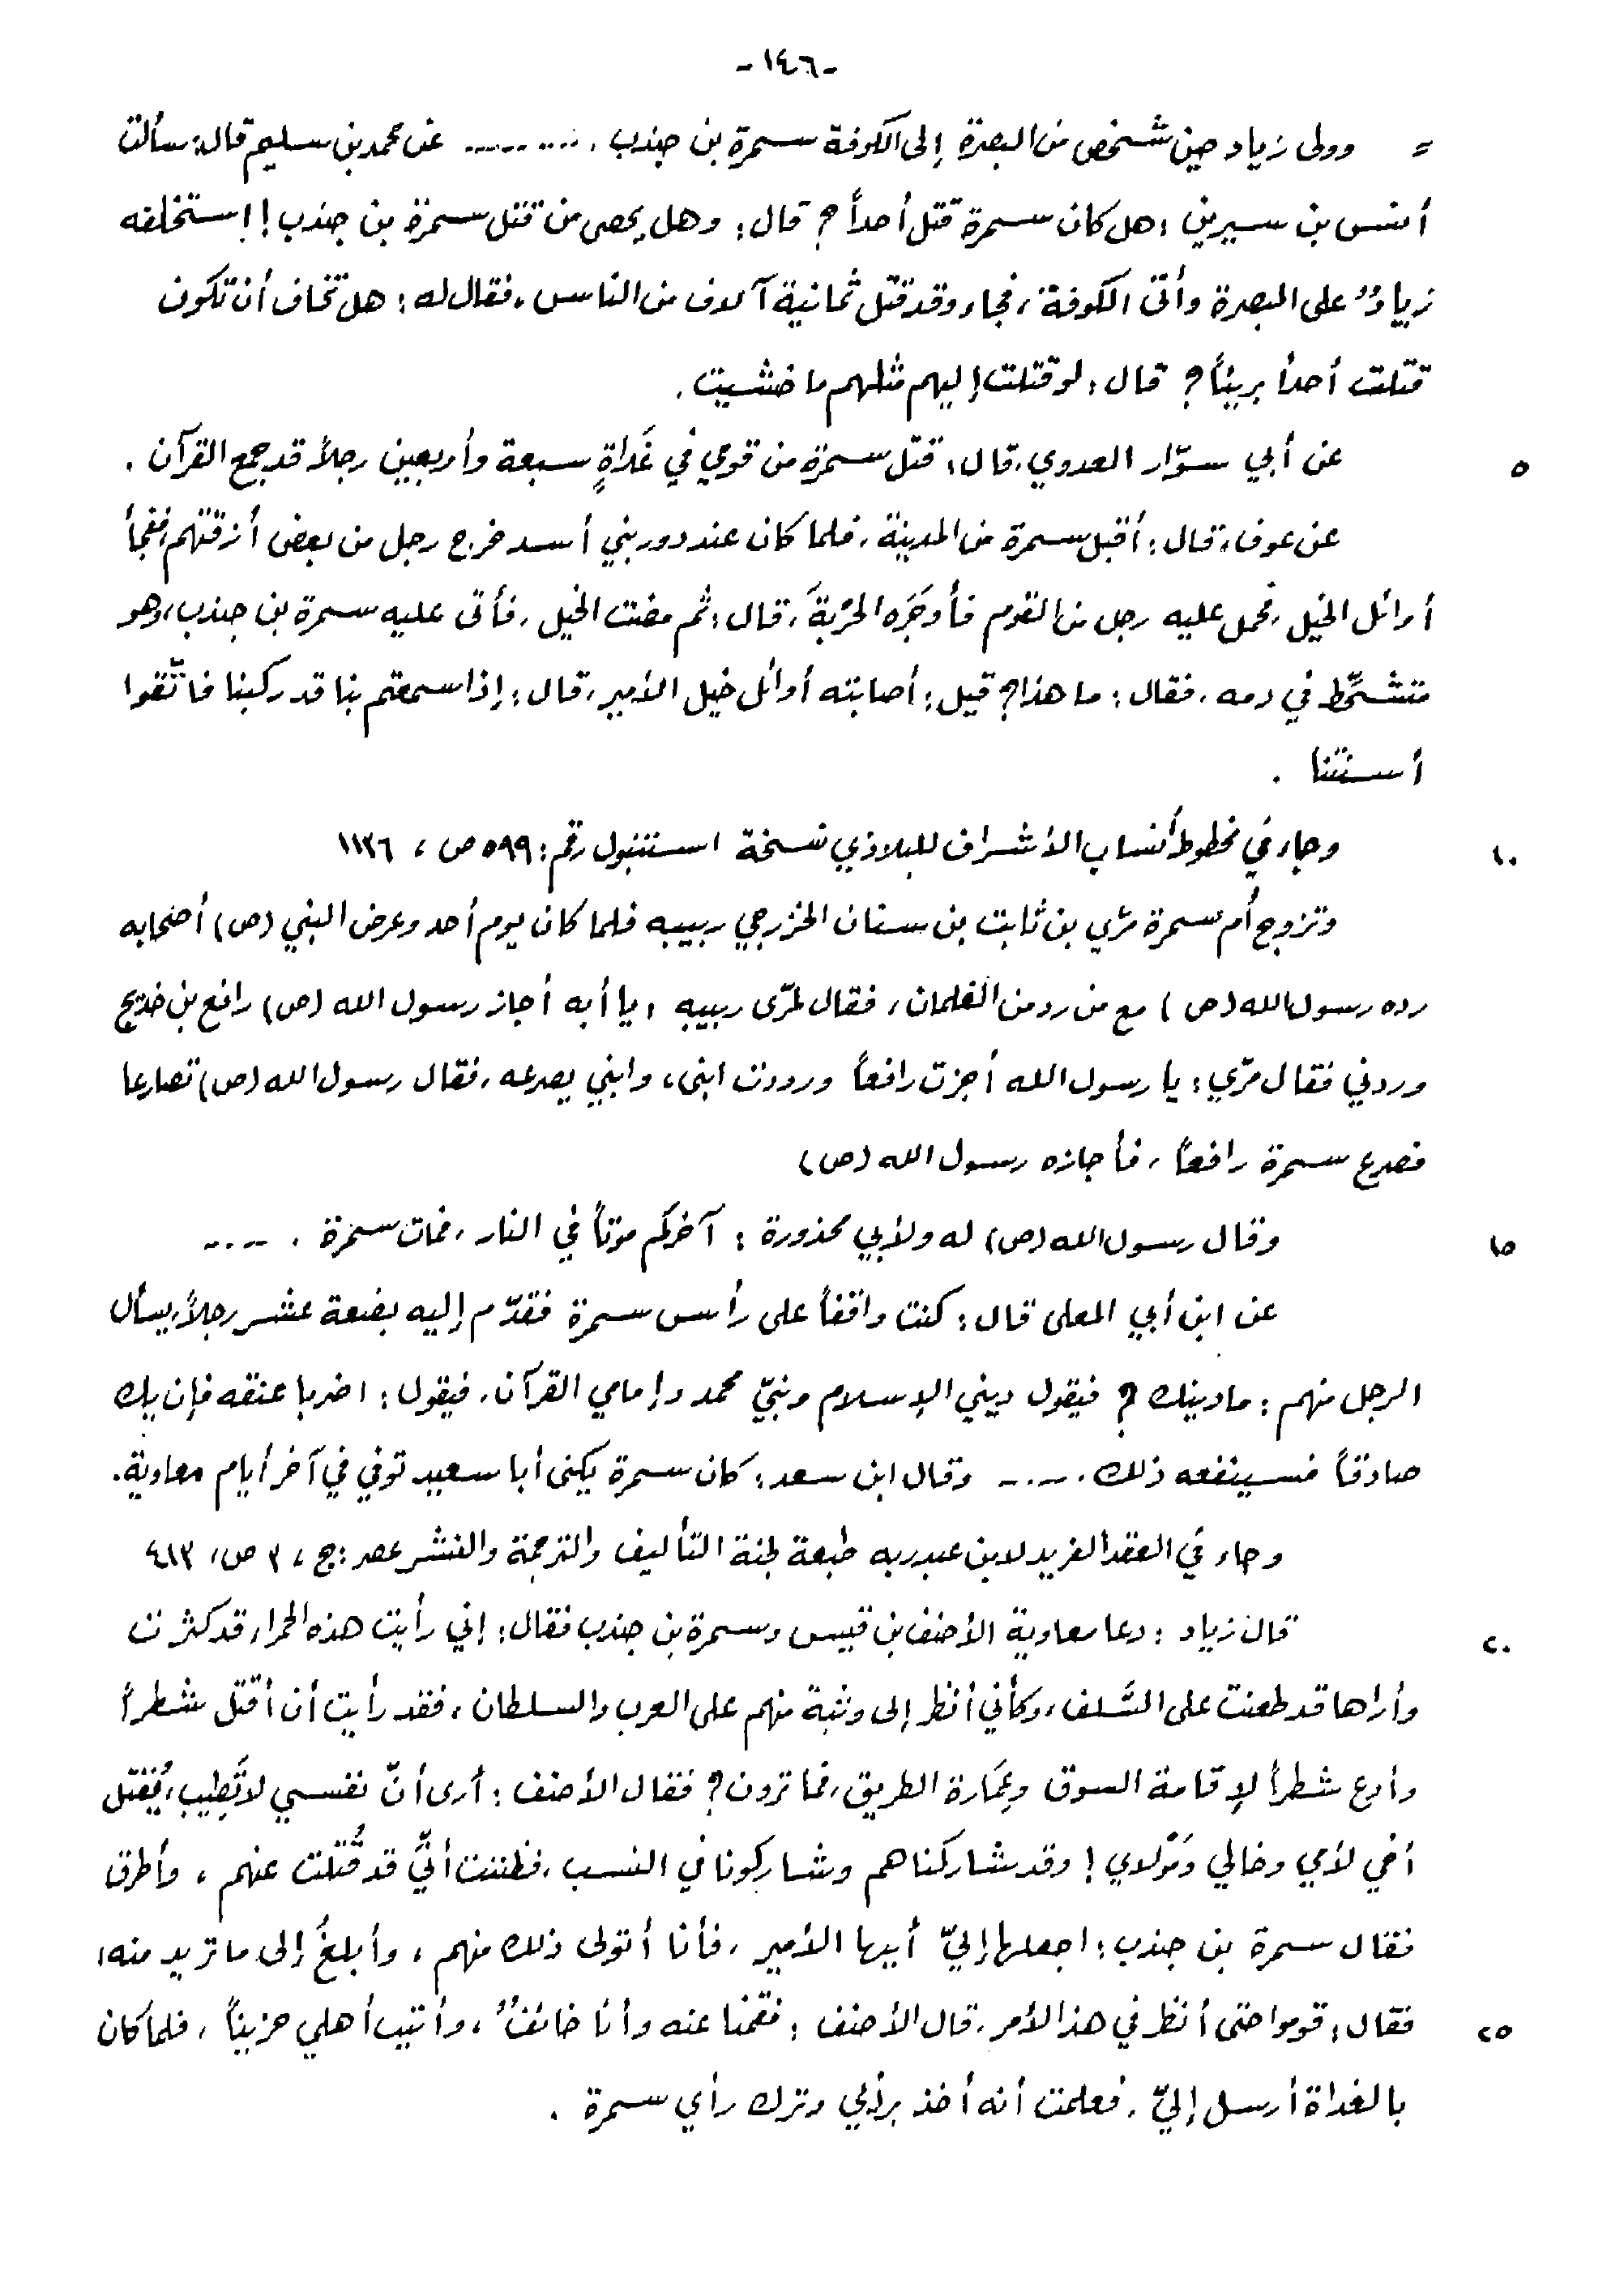 -١٤٦-
= وولى زياد حين شخص من البصرة إلى الكوفة سمرة بن جندب . ........ عن محمد بن سليم قال: سألت
أنس بن سيرين : هل كان سمرة قتل أحداً ؟ قال : وهل يحصى من قتل سمرة بن جندب ! استخلفه
زيادٌ على البصرة وأتى الكوفة ، فجاء وقد قتل ثمانية آلاف من الناس ، فقال له : هل تخاف أن تكون
قتلت أحداً بريئاً ؟ قال : لو قتلت إليهم مثلهم ما خشيت .
٥ عن أبي سوّار العدوي ، قال : قتل سمرة من قومي في غَداةٍ سبعة وأربعين رجلاً قد جمع القرآن .
عن عوف ، قال : أقبل سمرة من المدينة ، فلما كان عند دور بني أسد خرج رجل من بعض أزقتهم ، ففجأ
أوائل الخيل ، فحمل عليه رجل من القوم فأوجَرَه الحَرْبةَ ، قال : ثم مضت الخيل ، فأتى عليه سمرة بن جندب ، وهو
متشحِّط في دمه ، فقال : ما هذا ؟ قيل : أصابته أوائل خيل الأمير ، قال : إذا سمعتم بنا قد ركبنا فاتّقوا
أسنتنا .
١٠ وجاء في مخطوط أنساب الأشراف للبلاذري نسخة استنبول رقم : ٥٩٩ ص ، ١١٣٦
وتزوج أم سمرة مرّي بن ثابت بن سنان الخزرجي ربيبه فلما كان يوم أحد وعرض النبي (ص) أصحابه
رده رسول الله (ص) مع من رد من الغلمان ، فقال لمرّى ربيبه : يا أبه أجاز رسول الله (ص) رافع بن خديج
وردني فقال مرّي : يا رسول الله أجزت رافعاً ورددت ابنى ، وابني يصرعه ، فقال رسول الله (ص) تصارعا
فصرع سمرة رافعاً ، فأجازه رسول الله (ص)
١٥ وقال رسول الله (ص) له ولأبي محذورة : آخركم موتاً في النار ، فمات سمرة . ....
عن ابن أبي المعلى قال : كنت واقفاً على رأس سمرة فقدّم إليه بضعة عشر رجلاً ، يسأل
الرجل منهم : ما دينك ؟ فيقول ديني الإسلام ونبيّ محمد وإمامي القرآن . فيقول : اضربا عنقه فإن يك
صادقاً فسينفعه ذلك . .... وقال ابن سعد : كان سمرة يكنى أبا سعيد توفي في آخر أيام معاوية .
وجاء في العقد الفريد لابن عبد ربه طبعة لجنة التأليف والترجمة والنشر بمصر : ج ، ٣ ص ، ٤١٣
٢٠ قال زياد : دعا معاوية الأحنف بن قيس وسمرة بن جندب فقال : إني رأيت هذه الحمراء قد كثرت
وأراها قد طعنت على السَّلف ، وكأني أنظر إلى وثبة منهم على العرب والسلطان ، فقد رأيت أن أقتل شطراً
وأدع شطراً لإقامة السوق وعِمَارة الطريق ، فما ترون ؟ فقال الأحنف : أرى أنّ نفسي لا تَطِيب ، يُقتل
أخي لأمي وخالي ومَوْلاي ! وقد شاركناهم وشاركونا في النسب ، فظننت أنِّي قد قُتلت عنهم ، وأطرق
فقال سمرة بن جندب : اجعلها إليّ أيها الأمير ، فأنا أتولى ذلك منهم ، وأبلغُ إلى ما تريد منه ،
٢٥ فقال : قوموا حتى أنظر في هذا الأمر . قال الأحنف : فقمنا عنه وأنا خائفٌ ، وأتيت أهلي حزيناً ، فلما كان
بالغداة أرسل إليّ ، فعلمت أنه أخذ برأيي وترك رأي سمرة .